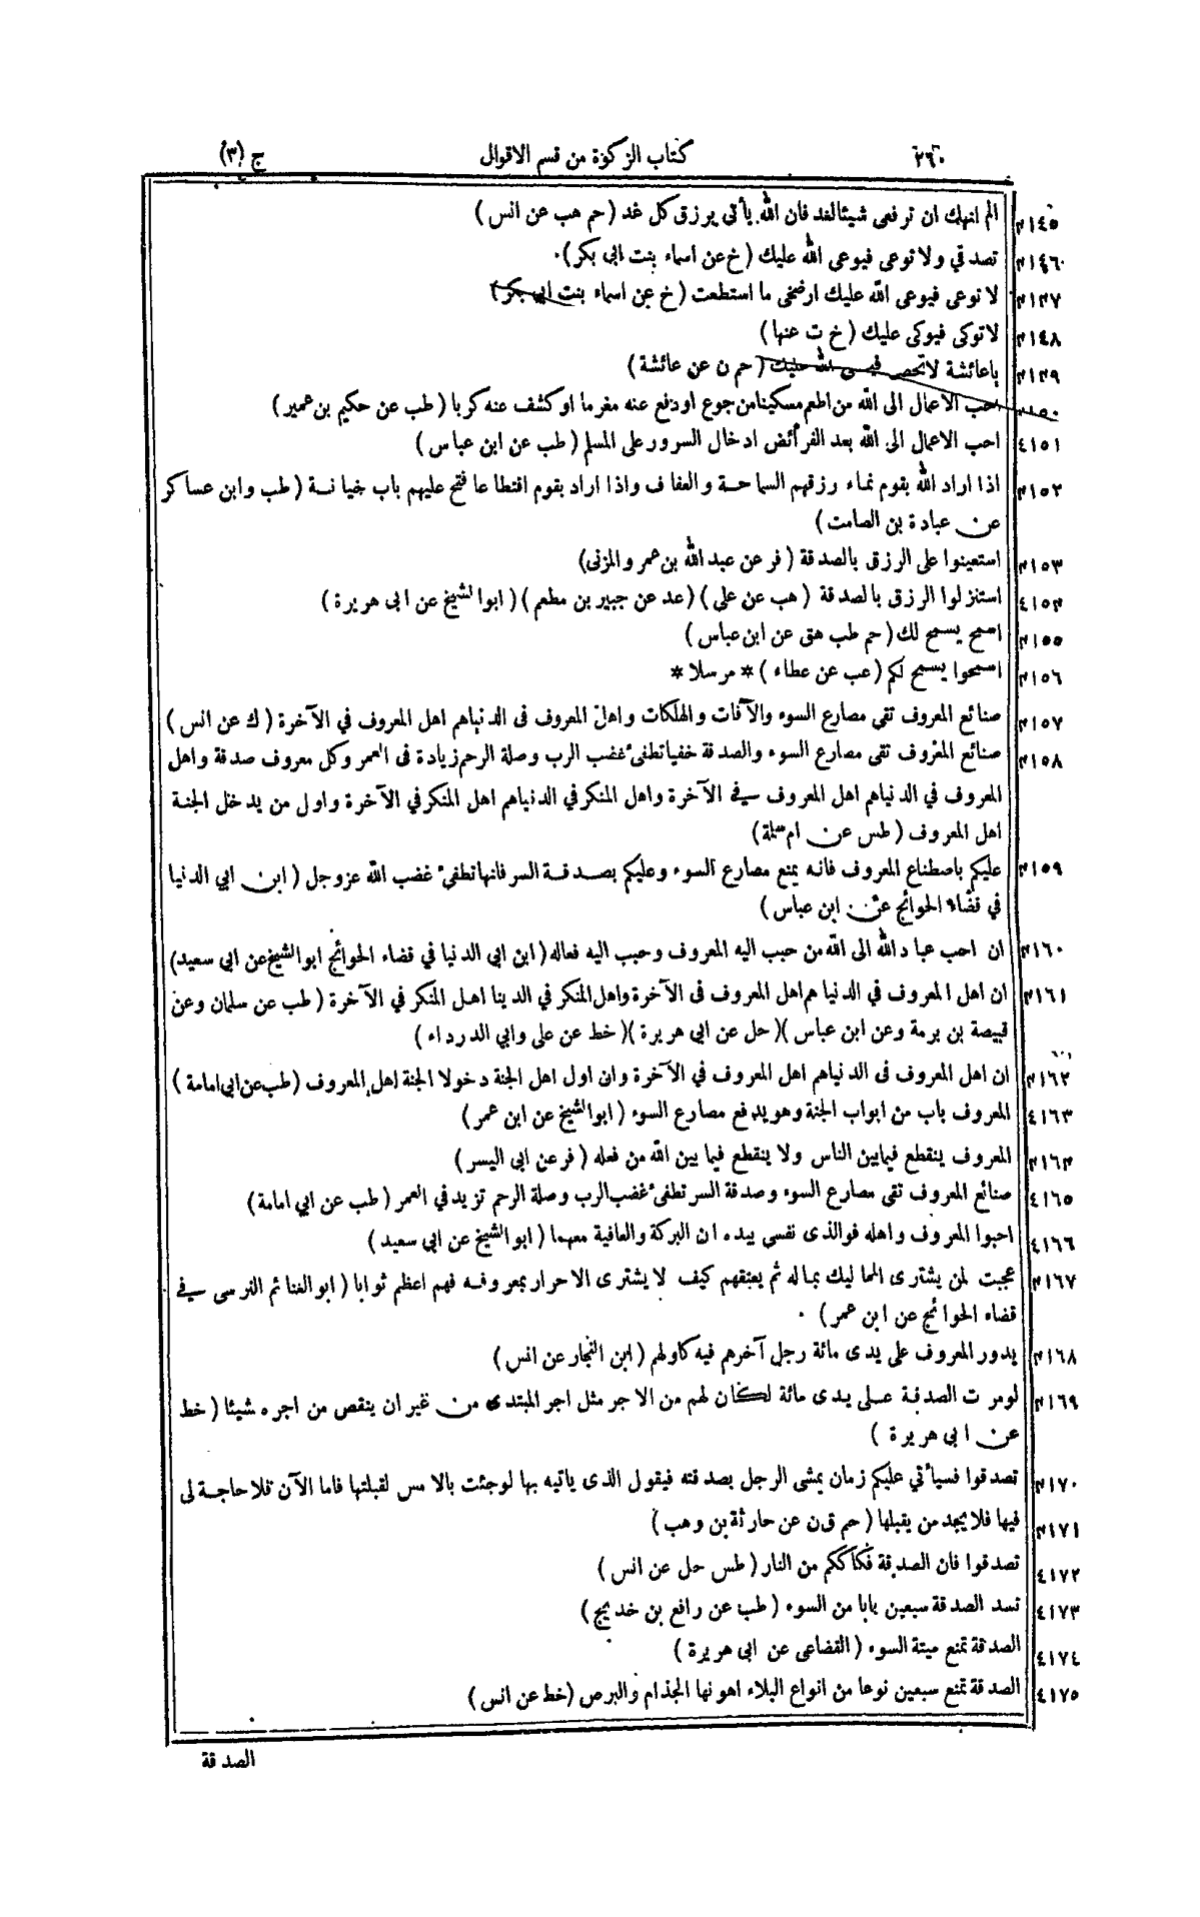 ٢٦٠ كتاب الزكوة من قسم الاقوال ج (٣)
٤١٤٥ الم انهك ان ترفعى شيئا لغد فان الله يأتى برزق كل غد (حم هب عن انس)
٤١٤٦ تصدقي ولا توعى فيوعى الله عليك (خ عن اسماء بنت ابى بكر)
٤١٤٧ لا توعى فيوعى الله عليك ارضخى ما استطعت (خ عن اسماء بنت ابى بكر)
٤١٤٨ لا توكى فيوكى عليك (خ ت عنها)
٤١٤٩ ياعائشة لا تحصى الله عليك (حم ن عن عائشة)
٤١٥٠ احب الاعمال الى الله من اطعم مسكينا من جوع او دفع عنه مغرما او كشف عنه كربا (طب عن حكيم بن عمير)
٤١٥١ احب الاعمال الى الله بعد الفرائض ادخال السرور على المسلم (طب عن ابن عباس)
٤١٥٢ اذا اراد الله بقوم نماء رزقهم السماحة والعفاف واذا اراد بقوم اقتطاعا فتح عليهم باب خيانة (طب وابن عساكر
عن عبادة بن الصامت)
٤١٥٣ استعينوا على الرزق بالصدقة (فر عن عبد الله بن عمر والمزنى)
٤١٥٤ استنزلوا الرزق بالصدقة (هب عن على) (عد عن جبير بن مطعم) (ابو الشيخ عن ابى هريرة)
٤١٥٥ اسمح يسمح لك (حم طب هق عن ابن عباس)
٤١٥٦ اسمحوا يسمح لكم (عب عن عطاء) * مرسلا *
٤١٥٧ صنائع المعروف تقي مصارع السوء والآفات والهلكات واهل المعروف فى الدنيا هم اهل المعروف في الآخرة (ك عن انس)
٤١٥٨ صنائع المعروف تقى مصارع السوء والصدقة خفيا تطفئ غضب الرب وصلة الرحم زيادة فى العمر وكل معروف صدقة واهل
المعروف في الدنيا هم اهل المعروف في الآخرة واهل المنكر في الدنيا هم اهل المنكر في الآخرة واول من يدخل الجنة
اهل المعروف (طس عن ام سلمة)
٤١٥٩ عليكم باصطناع المعروف فانه يمنع مصارع السوء وعليكم بصدقة السر فانها تطفئ غضب الله عزوجل (ابن ابي الدنيا
في قضاء الحوائج عن ابن عباس)
٤١٦٠ ان احب عباد الله الى الله من حبب اليه المعروف وحبب اليه فعاله (ابن ابي الدنيا في قضاء الحوائج ابو الشيخ عن ابي سعيد)
٤١٦١ ان اهل المعروف في الدنيا هم اهل المعروف فى الآخرة واهل المنكر في الدينا اهل المنكر في الآخرة (طب عن سلمان وعن
قبيصة بن برمة وعن ابن عباس) (حل عن ابي هريرة) (خط عن على وابي الدرداء)
٤١٦٢ ان اهل المعروف فى الدنيا هم اهل المعروف في الآخرة وان اول اهل الجنة دخولا الجنة اهل المعروف (طب عن ابي امامة)
٤١٦٣ المعروف باب من ابواب الجنة وهو يدفع مصارع السوء (ابو الشيخ عن ابن عمر)
٤١٦٤ المعروف ينقطع فيما بين الناس ولا ينقطع فيما بين الله من فعله (فر عن ابى اليسر)
٤١٦٥ صنائع المعروف تقى مصارع السوء وصدقة السر تطفئ غضب الرب وصلة الرحم تزيد في العمر (طب عن ابي امامة)
٤١٦٦ احبوا المعروف واهله فوالذى نفسي بيده ان البركة والعافية معهما (ابو الشيخ عن ابي سعيد)
٤١٦٧ عجبت لمن يشترى المماليك بماله ثم يعتقهم كيف لا يشترى الاحرار بمعروفه فهم اعظم ثوابا (ابو الغنائم النرسى في
قضاء الحوائج عن ابن عمر)
٤١٦٨ يدور المعروف على يدى مائة رجل آخرهم فيه كاولهم (ابن النجار عن انس)
٤١٦٩ لو مرت الصدقة على يدى مائة لكان لهم من الاجر مثل اجر المبتدى من غير ان ينقص من اجره شيئا (خط
عن ابى هريرة)
٤١٧٠ تصدقوا فسيأتي عليكم زمان يمشى الرجل بصدقته فيقول الذى ياتيه بها لو جئت بالامس لقبلتها فاما الآن فلا حاجة لى
٤١٧١ فيها فلا يجد من يقبلها (حم ق ن عن حارثة بن وهب)
٤١٧٢ تصدقوا فان الصدقة فكاككم من النار (طس حل عن انس)
٤١٧٣ تسد الصدقة سبعين بابا من السوء (طب عن رافع بن خديج)
٤١٧٤ الصدقة تمنع ميتة السوء (القضاعى عن ابى هريرة)
٤١٧٥ الصدقة تمنع سبعين نوعا من انواع البلاء اهونها الجذام والبرص (خط عن انس)
الصدقة